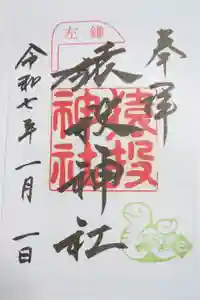 奉拝
猿投神社
左鎌
猿投神社
令和七年一月一日